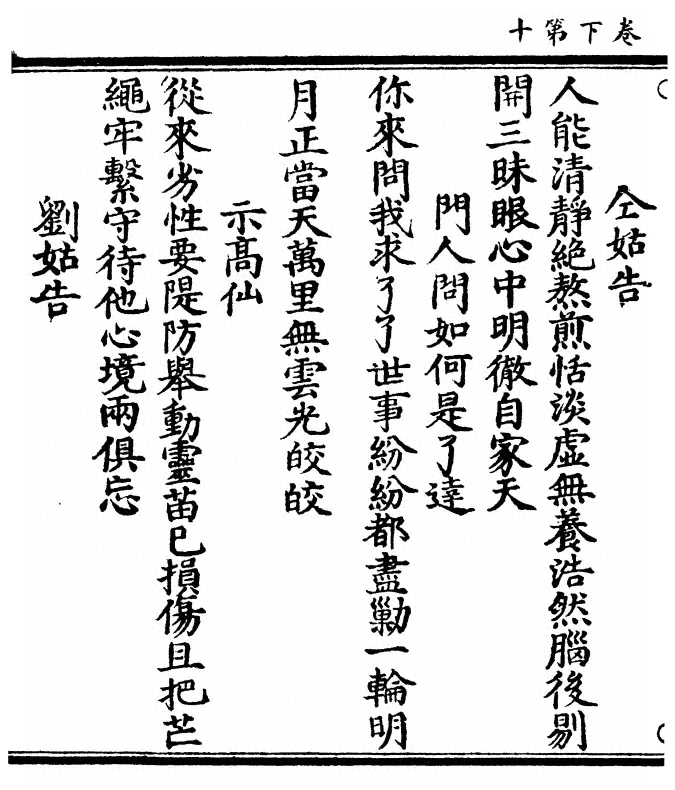 卷下第十
仝姑告
人能清靜絶熬煎恬淡虛無養浩然腦後剔
開三昧眼心中明徹自家天
門人問如何是了達
你來問我求了了世事紛紛都盡勦一輪明
月正當天萬里無雲光皎皎
示高仙
從來劣性要隄防舉動靈苗已損傷且把芒
繩牢繫守待他心境兩俱忘
劉姑告